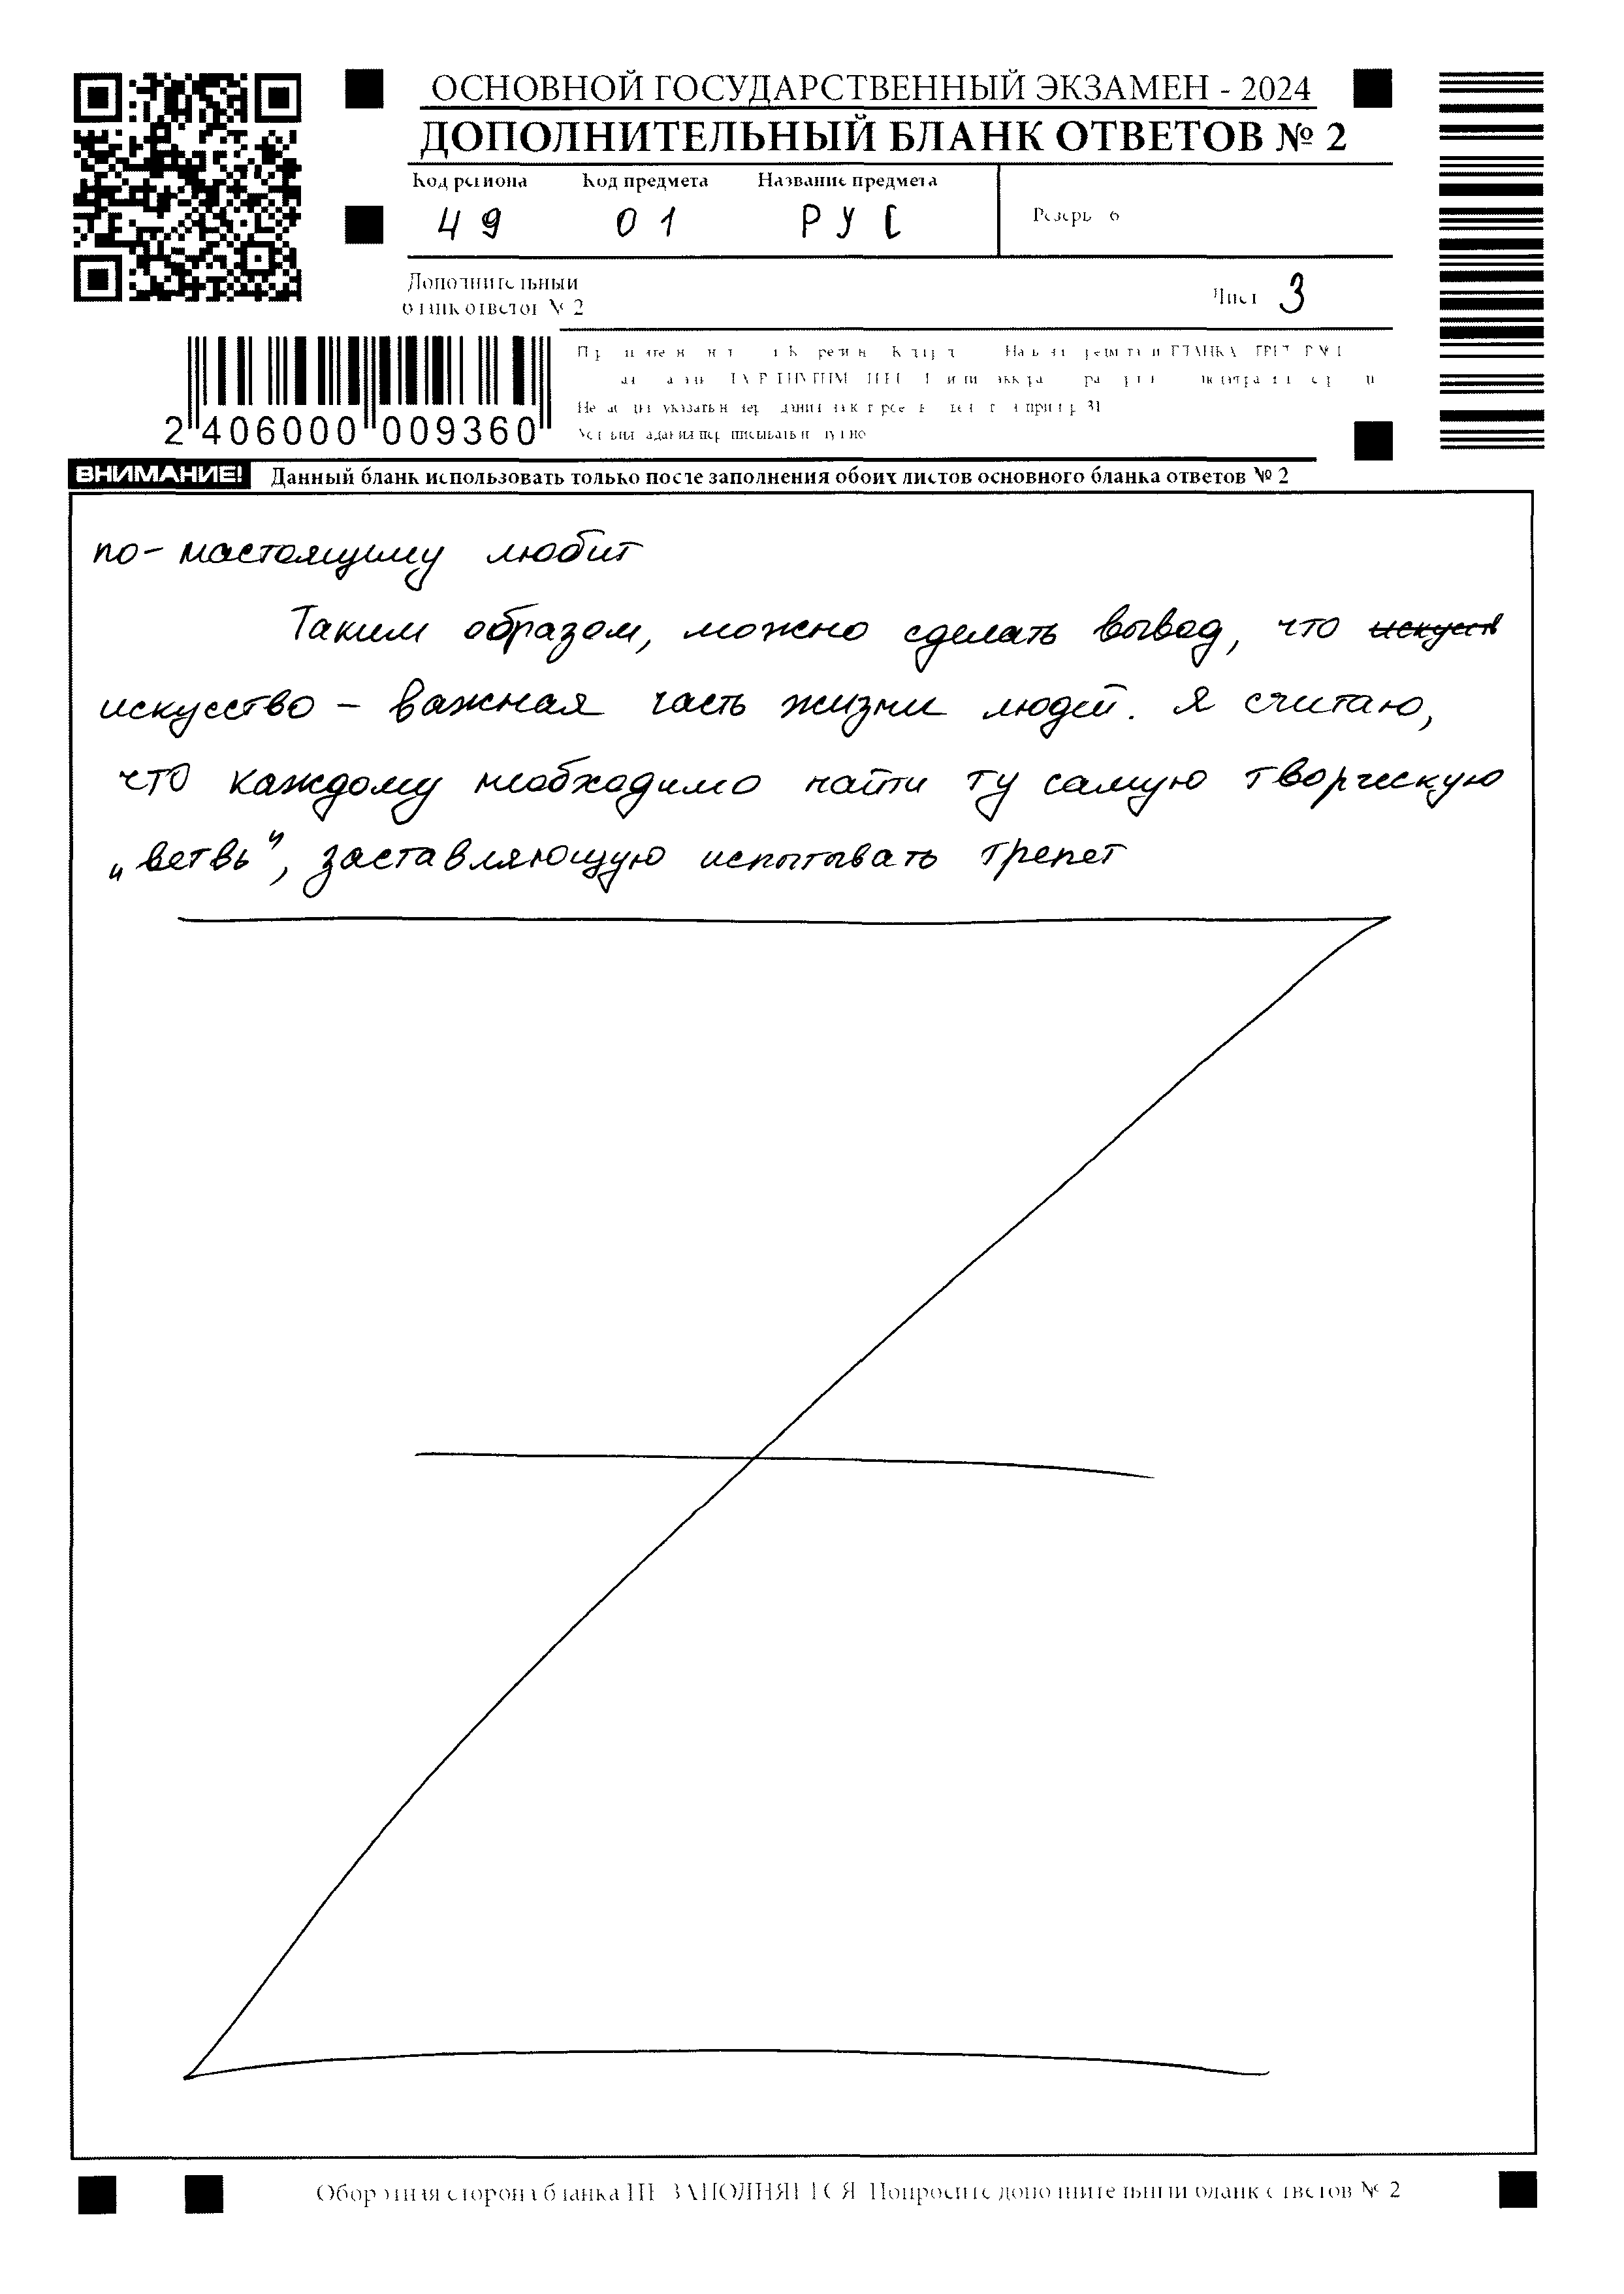 ОСНОВНОЙ ГОСУДАРСТВЕННЫЙ ЭКЗАМЕН - 2024
ДОПОЛНИТЕЛЬНЫЙ БЛАНК ОТВЕТОВ № 2
Код региона Код предмета Название предмета
49 01 РУС
Резерв 6
Дополнительный
бланк ответов № 2
Лист 3
2 406000 009360
ВНИМАНИЕ! Данный бланк использовать только после заполнения обоих листов основного бланка ответов № 2
по-настоящиму любит
Таким образом, можно сделать вывод, что искусств
искусство – важная часть жизни людей. Я считаю,
что каждому необходимо найти ту самую творческую
„ветвь“, заставляющую испытывать трепет
Оборотная сторона бланка НЕ ЗАПОЛНЯЕТСЯ Попросите дополнительный бланк ответов № 2